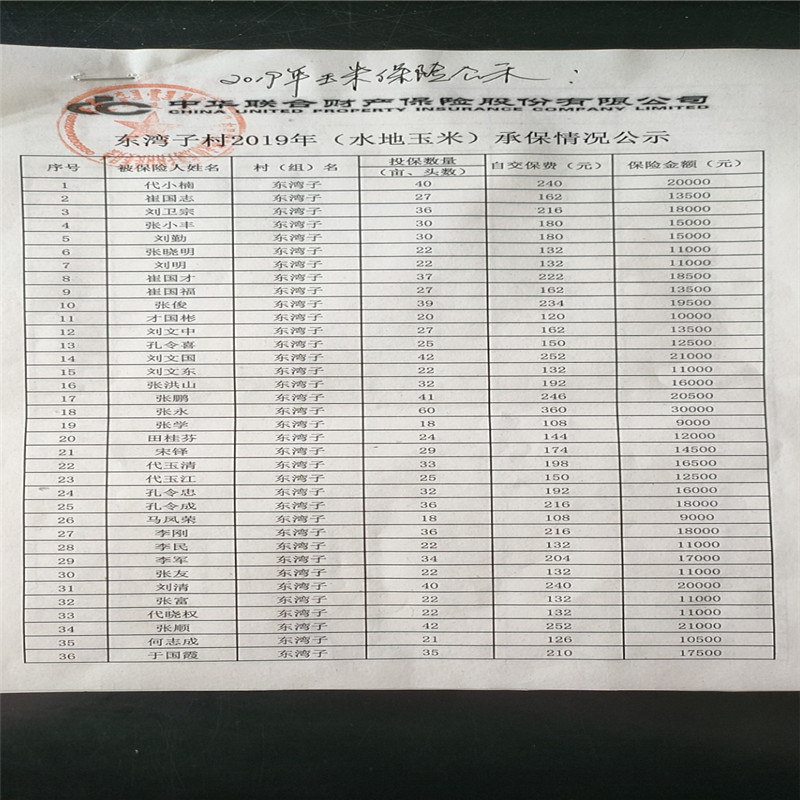 2019年玉米保险公示：
中华联合财产保险股份有限公司
CHINA UNITED PROPERTY INSURANCE COMPANY LIMITED
东湾子村2019年（水地玉米）承保情况公示
序号 被保险人姓名 村（组）名 投保数量（亩、头数） 自交保费（元） 保险金额（元）
1 代小楠 东湾子 40 240 20000
2 崔国志 东湾子 27 162 13500
3 刘卫宗 东湾子 36 216 18000
4 张小丰 东湾子 30 180 15000
5 刘勤 东湾子 30 180 15000
6 张晓明 东湾子 22 132 11000
7 刘明 东湾子 22 132 11000
8 崔国才 东湾子 37 222 18500
9 崔国福 东湾子 27 162 13500
10 张俊 东湾子 39 234 19500
11 才国彬 东湾子 20 120 10000
12 刘文中 东湾子 27 162 13500
13 孔令喜 东湾子 25 150 12500
14 刘文国 东湾子 42 252 21000
15 刘文东 东湾子 22 132 11000
16 张洪山 东湾子 32 192 16000
17 张鹏 东湾子 41 246 20500
18 张永 东湾子 60 360 30000
19 张学 东湾子 18 108 9000
20 田桂芬 东湾子 24 144 12000
21 宋铎 东湾子 29 174 14500
22 代玉清 东湾子 33 198 16500
23 代玉江 东湾子 25 150 12500
24 孔令忠 东湾子 32 192 16000
25 孔令成 东湾子 36 216 18000
26 马凤荣 东湾子 18 108 9000
27 李刚 东湾子 36 216 18000
28 李民 东湾子 22 132 11000
29 李军 东湾子 34 204 17000
30 张友 东湾子 22 132 11000
31 刘清 东湾子 40 240 20000
32 张富 东湾子 22 132 11000
33 代晓权 东湾子 22 132 11000
34 张顺 东湾子 42 252 21000
35 何志成 东湾子 21 126 10500
36 于国霞 东湾子 35 210 17500